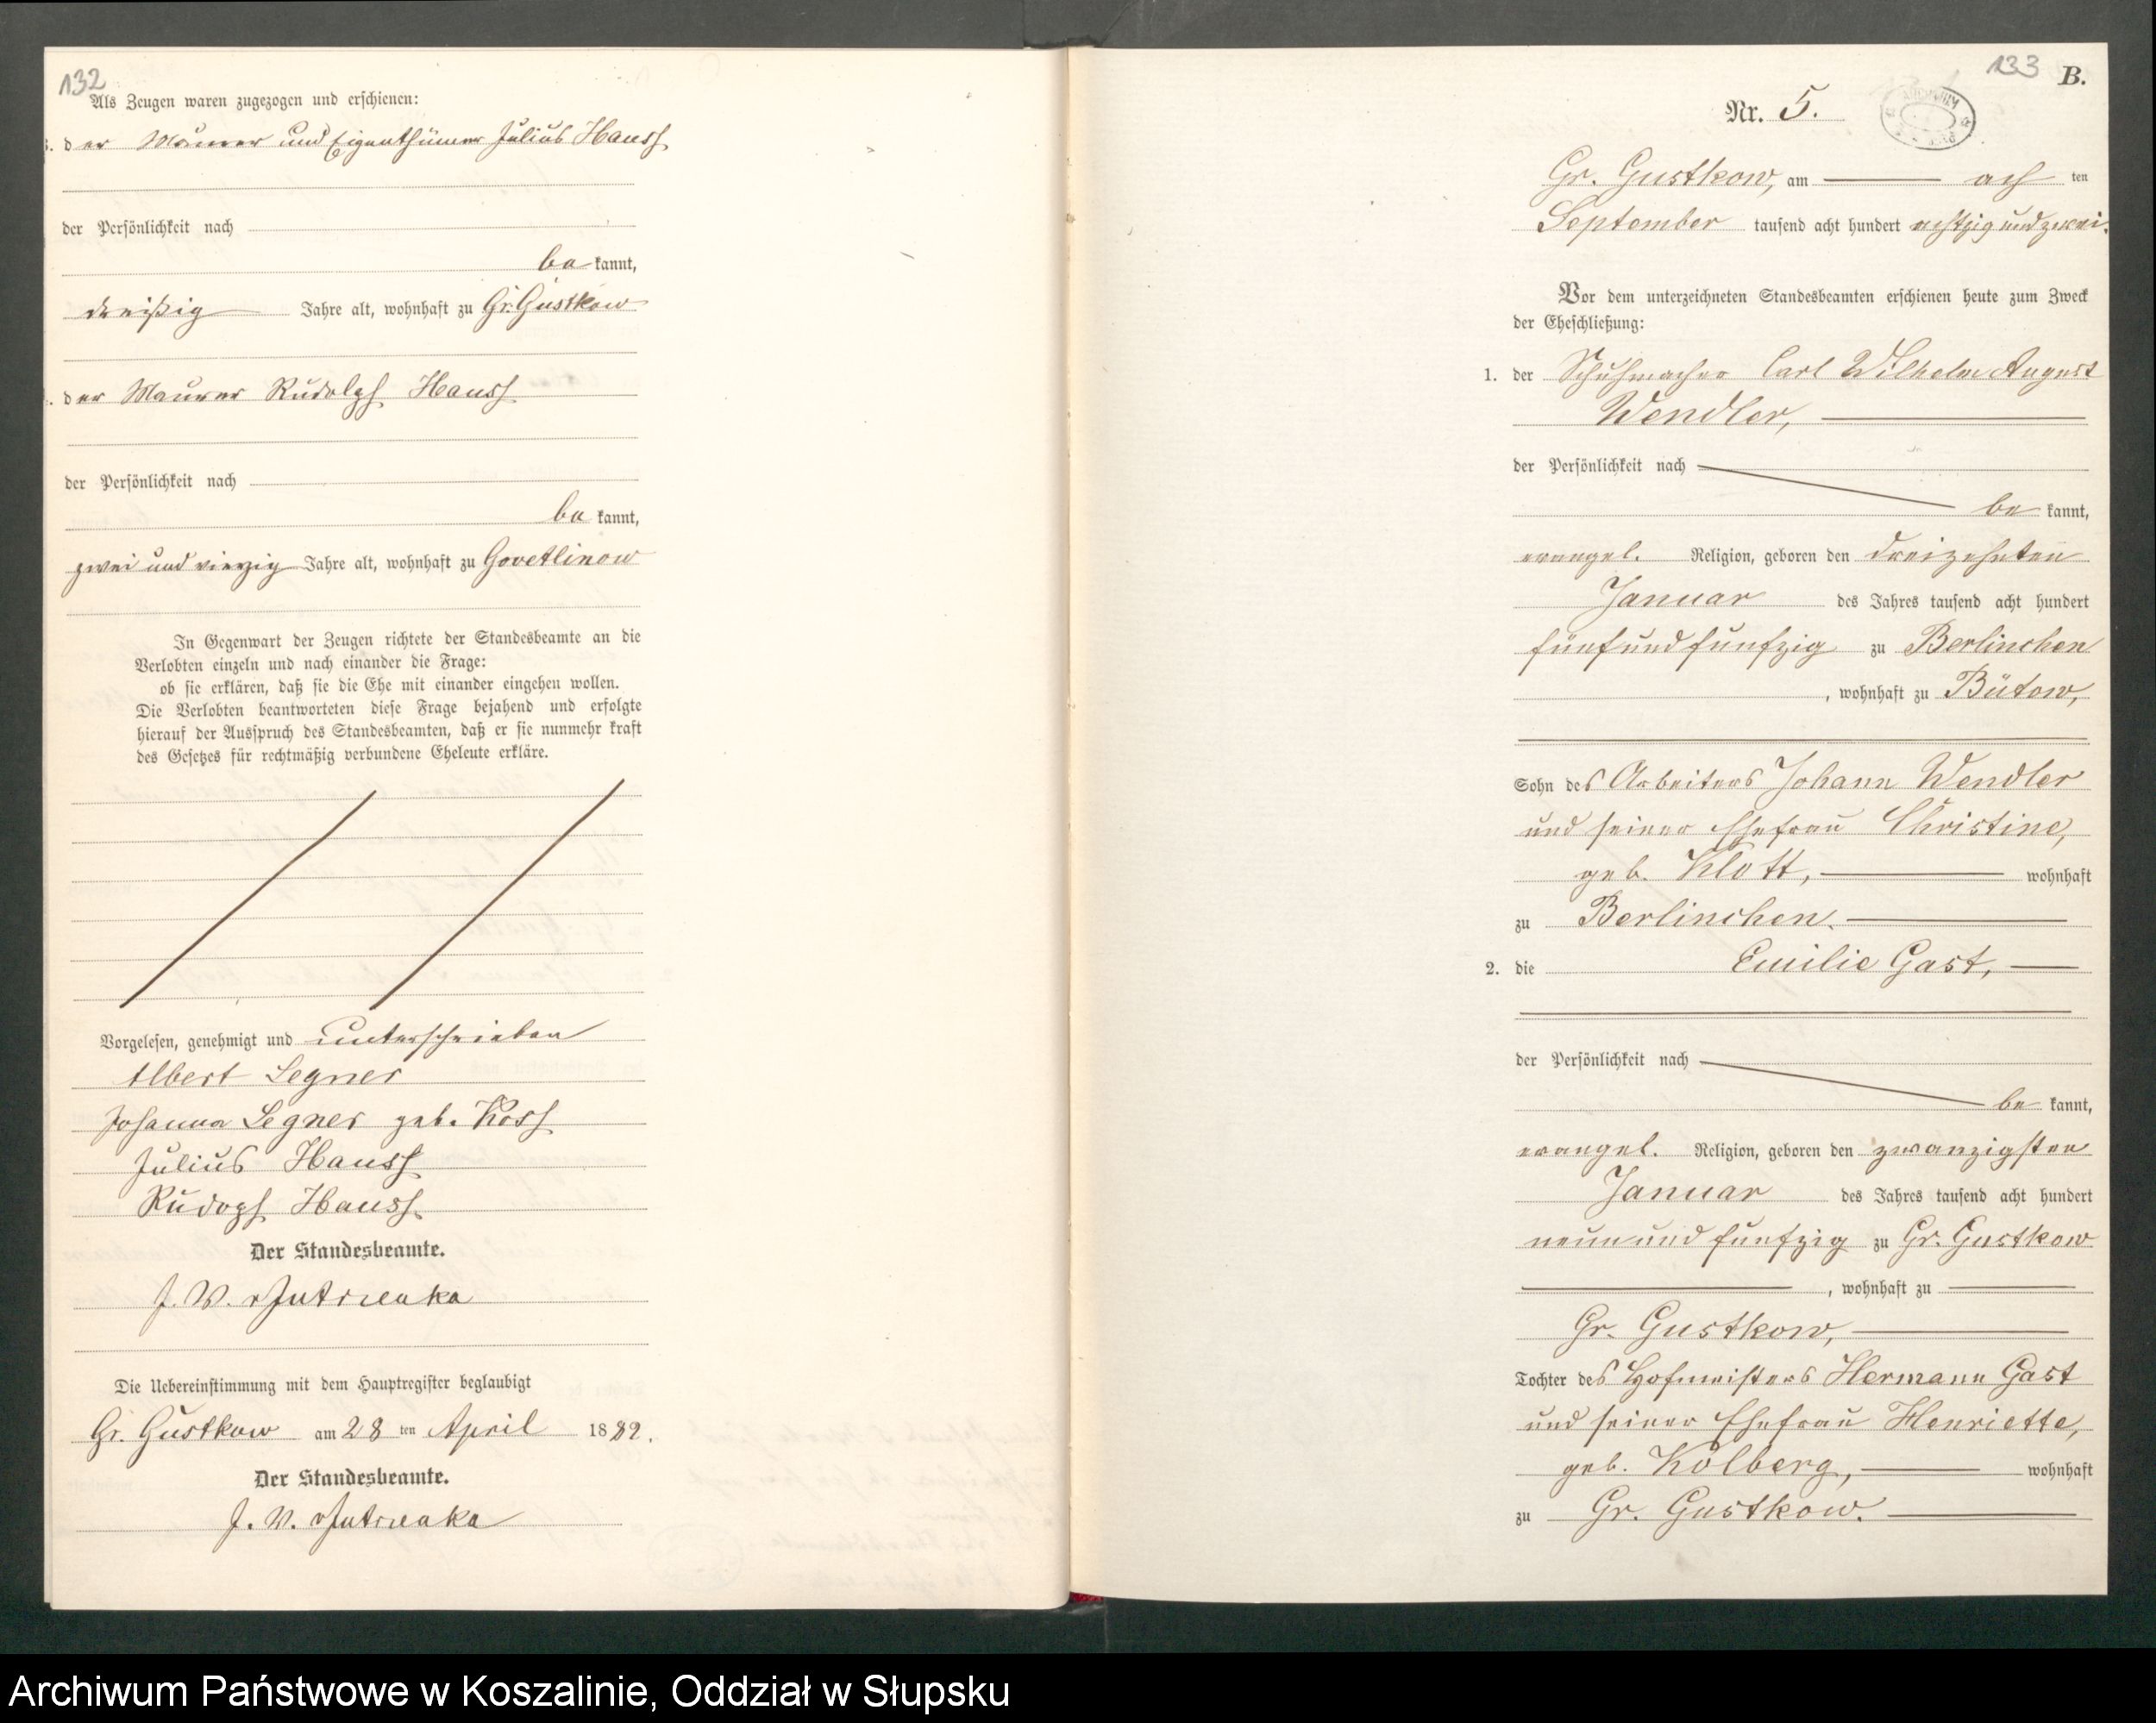 132
Als Zeugen waren zugezogen und erschienen:
3. der Maurer und Eigenthümer Julius Hauss
der Persönlichkeit nach
be kannt,
dreißig Jahre alt, wohnhaft zu Gr. Gustkow
der Maurer Rudolph Hauss
der Persönlichkeit nach
be kannt,
zwei und vierzig Jahre alt, wohnhaft zu
In Gegenwart der Zeugen richtete der Standesbeamte an die
Verlobten einzeln und nach einander die Frage:
ob sie erklären, daß sie die Ehe mit einander eingehen wollen.
Die Verlobten beantworteten diese Frage bejahend und erfolgte
hierauf der Ausspruch des Standesbeamten, daß er sie nunmehr kraft
des Gesetzes für rechtmäßig verbundene Eheleute erkläre.
Vorgelesen, genehmigt und unterschrieben
Albert Legner
Johanna Legner geb. Koss
Julius Hauss
Rudoph Hauss.
Der Standesbeamte.
J. W. v Jutrzenka
Die Uebereinstimmung mit dem Hauptregister beglaubigt
Gr. Gustkow am 28 ten April 1882.
Der Standesbeamte.
J. W. v Jutrzenka
133
B.
Nr. 5.
Gr. Gustkow, am ach ten
September tausend acht hundert achtzig und zwei.
Vor dem unterzeichneten Standesbeamten erschienen heute zum Zweck
der Eheschließung:
1. der Schuhmacher Carl Wilhelm August
Wendler,
der Persönlichkeit nach
be kannt,
evangel. Religion, geboren den dreizehnten
Januar des Jahres tausend acht hundert
fünf und funfzig zu Berlinchen
, wohnhaft zu Bütow,
Sohn des Arbeiters Johann Wendler
und seiner Ehefrau Christine,
geb. Klott, wohnhaft
zu Berlinchen.
2. die Emilie Gast,
der Persönlichkeit nach
be kannt,
evangel. Religion, geboren den zwanzigsten
Januar des Jahres tausend acht hundert
neun und funfzig zu Gr. Gustkow
, wohnhaft zu
Gr. Gustkow,
Tochter des Hofmeisters Hermann Gast
und seiner Ehefrau Henriette,
geb. Kolberg, wohnhaft
zu Gr. Gustkow.
Archiwum Państwowe w Koszalinie, Oddział w Słupsku